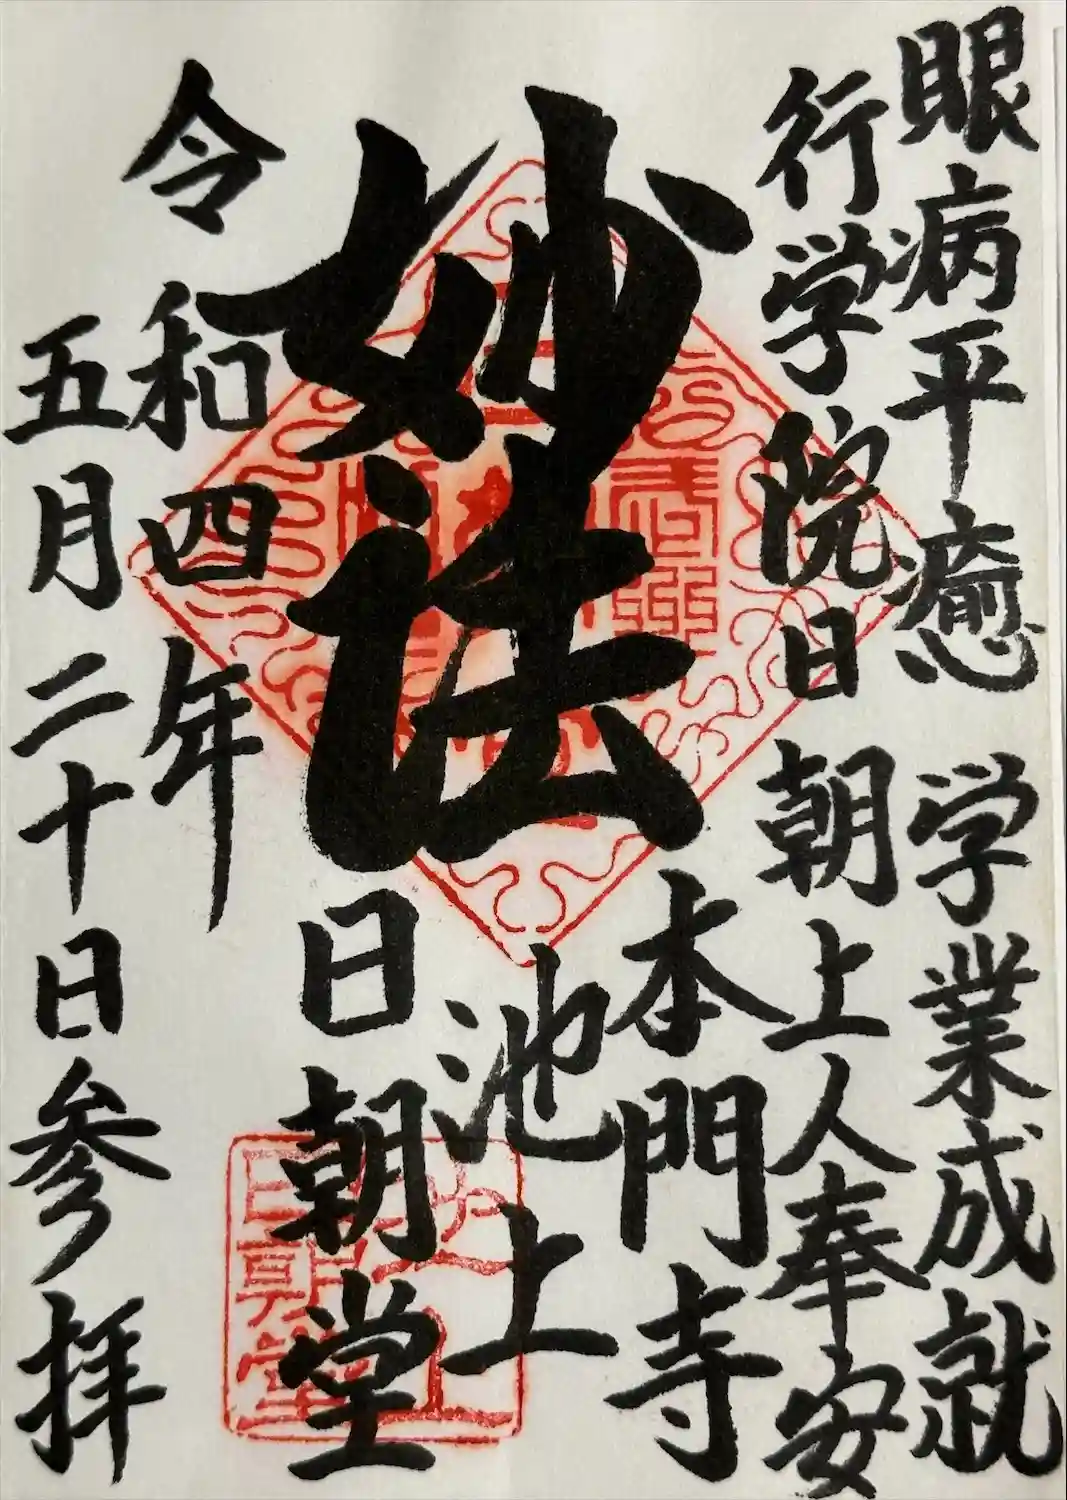 眼病平癒 学業成就
行学院日朝上人奉安
妙法
本門寺
池上
日朝堂
令和四年
五月二十日参拝